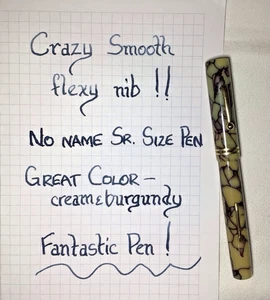 Crazy Smooth
flexy nib !!
NO NAME SR. SIZE PEN
GREAT COLOR –
cream & burgundy
Fantastic Pen !